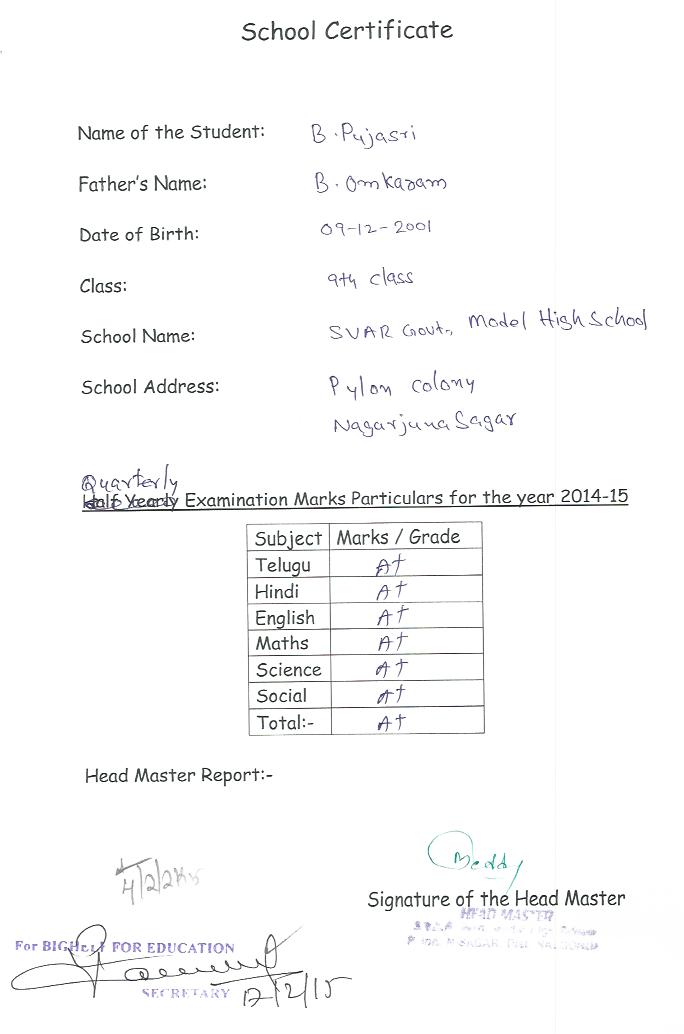 School Certificate
Name of the Student: B. Pujasri
Father's Name: B. Omkaram
Date of Birth: 09-12-2001
Class: 9th class
School Name: SVAR Govt., Model High School
School Address: Pylon colony
Nagarjuna Sagar
Quarterly
Half Yearly Examination Marks Particulars for the year 2014-15
Subject Marks / Grade
Telugu A+
Hindi A+
English A+
Maths A+
Science A+
Social A+
Total:- A+
Head Master Report:-
Reddy
Signature of the Head Master
HEAD MASTER
For BIGHelp FOR EDUCATION
SECRETARY 12/2/15